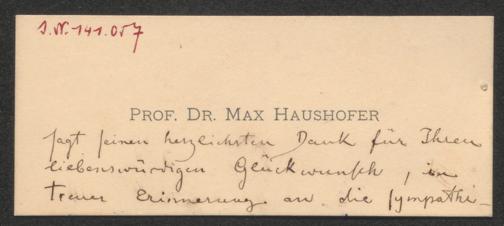 J.N. 141.057
PROF. DR. MAX HAUSHOFER
sagt seinen herzlichsten Dank für Ihren
liebenswürdigen Glückwunsch, in
treuer Erinnerung an die sympathi-